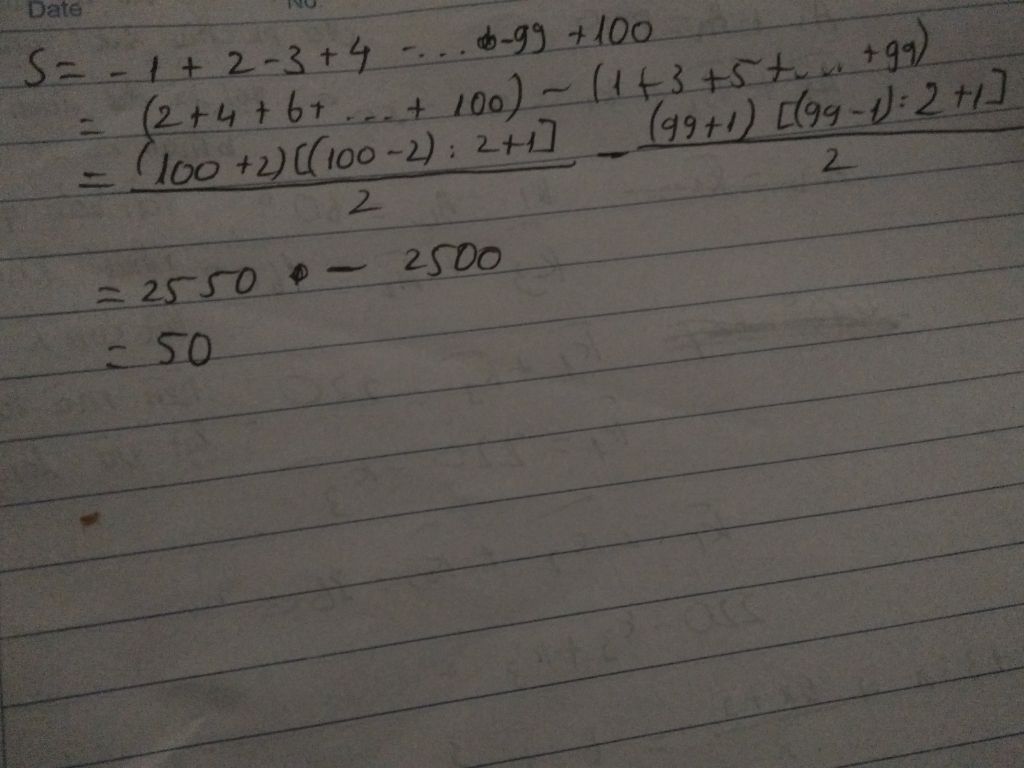 Date No
S = - 1 + 2 - 3 + 4 - ... - 99 + 100
= (2 + 4 + 6 + ... + 100) - (1 + 3 + 5 + ... + 99)
= (100 + 2) [(100 - 2) : 2 + 1] / 2 - (99 + 1) [(99 - 1) : 2 + 1] / 2
= 2550 - 2500
= 50